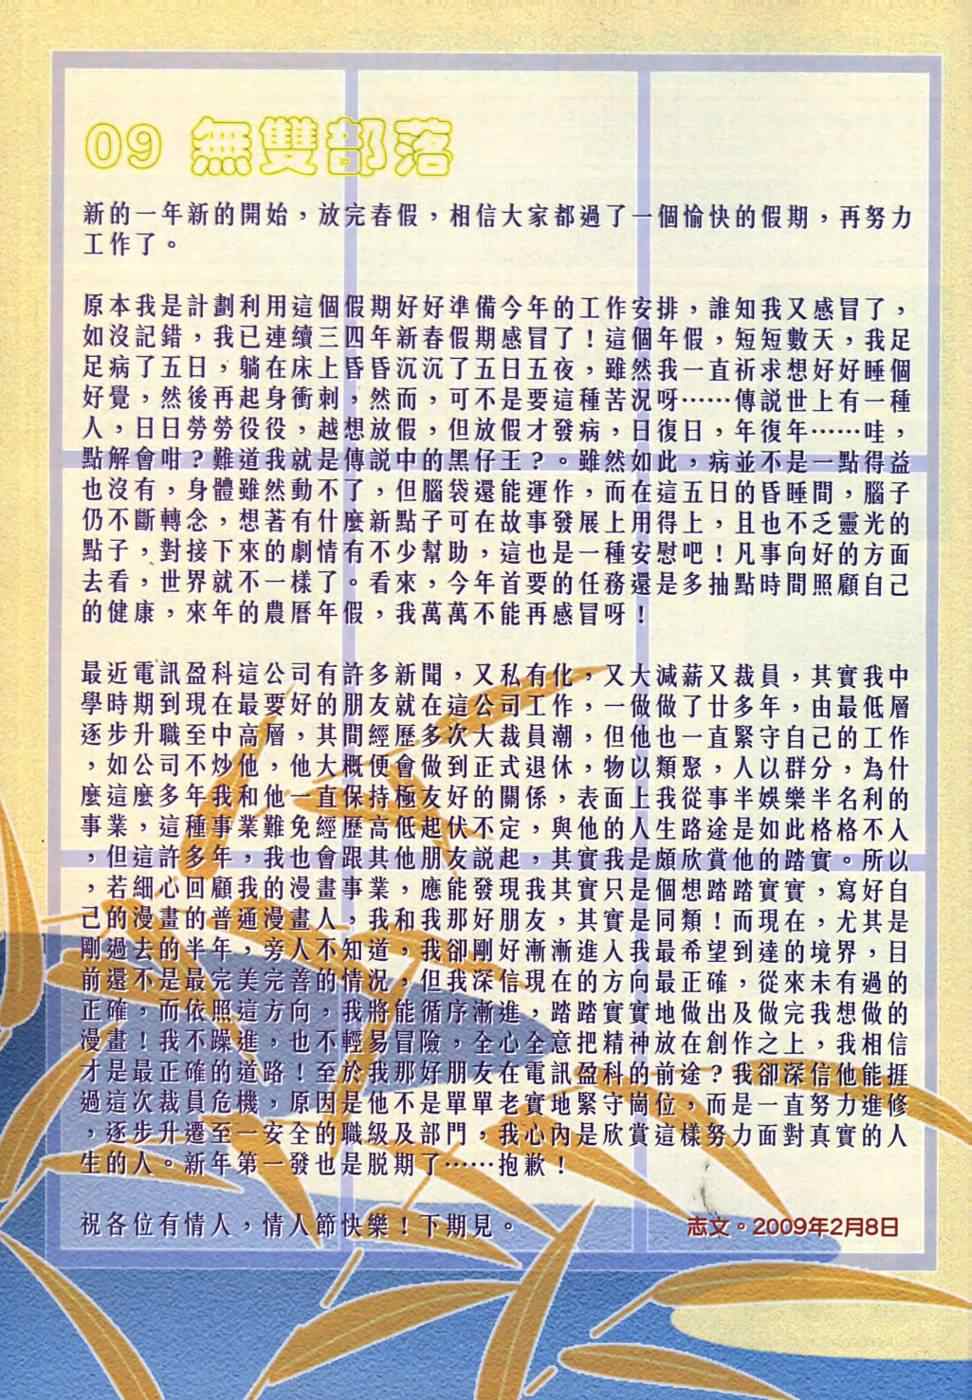 09 無雙部落
新的一年新的開始，放完春假，相信大家都過了一個愉快的假期，再努力
工作了。
原本我是計劃利用這個假期好好準備今年的工作安排，誰知我又感冒了，
如沒記錯，我已連續三四年新春假期感冒了！這個年假，短短數天，我足
足病了五日，躺在床上昏昏沉沉了五日五夜，雖然我一直祈求想好好睡個
好覺，然後再起身衝刺，然而，可不是要這種苦況呀……傳說世上有一種
人，日日勞勞役役，越想放假，但放假才發病，日復日，年復年……哇，
點解會咁？難道我就是傳說中的黑仔王？。雖然如此，病並不是一點得益
也沒有，身體雖然動不了，但腦袋還能運作，而在這五日的昏睡間，腦子
仍不斷轉念，想著有什麼新點子可在故事發展上用得上，且也不乏靈光的
點子，對接下來的劇情有不少幫助，這也是一種安慰吧！凡事向好的方面
去看，世界就不一樣了。看來，今年首要的任務還是多抽點時間照顧自己
的健康，來年的農曆年假，我萬萬不能再感冒呀！
最近電訊盈科這公司有許多新聞，又私有化，又大減薪又裁員，其實我中
學時期到現在最要好的朋友就在這公司工作，一做做了廿多年，由最低層
逐步升職至中高層，其間經歷多次大裁員潮，但他也一直緊守自己的工作
，如公司不炒他，他大概便會做到正式退休，物以類聚，人以群分，為什
麼這麼多年我和他一直保持極友好的關係，表面上我從事半娛樂半名利的
事業，這種事業難免經歷高低起伏不定，與他的人生路途是如此格格不入
，但這許多年，我也會跟其他朋友說起，其實我是頗欣賞他的踏實。所以
，若細心回顧我的漫畫事業，應能發現我其實只是個想踏踏實實，寫好自
己的漫畫的普通漫畫人，我和我那好朋友，其實是同類！而現在，尤其是
剛過去的半年，旁人不知道，我卻剛好漸漸進入我最希望到達的境界，目
前還不是最完美完善的情況，但我深信現在的方向最正確，從來未有過的
正確，而依照這方向，我將能循序漸進，踏踏實實地做出及做完我想做的
漫畫！我不躁進，也不輕易冒險，全心全意把精神放在創作之上，我相信
才是最正確的道路！至於我那好朋友在電訊盈科的前途？我卻深信他能捱
過這次裁員危機，原因是他不是單單老實地緊守崗位，而是一直努力進修
，逐步升遷至一安全的職級及部門，我心內是欣賞這樣努力面對真實的人
生的人。新年第一發也是脫期了……抱歉！
祝各位有情人，情人節快樂！下期見。
志文。2009年2月8日